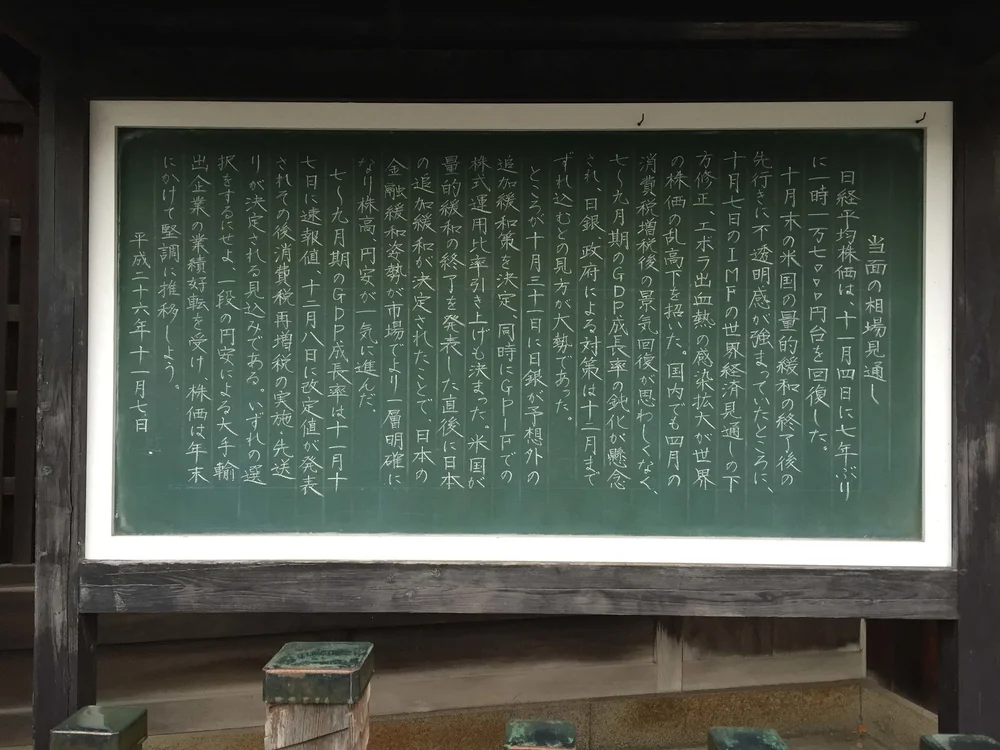 当面の相場見通し
日経平均株価は、十一月四日に七年ぶり
に一時一万七〇〇〇円台を回復した。
十月末の米国の量的緩和の終了後の
先行きに、不透明感が強まっていたところに、
十月七日のIMFの世界経済見通しの下
方修正、エボラ出血熱の感染拡大が世界
の株価の乱高下を招いた。国内でも四月の
消費税増税後の景気回復が思わしくなく、
七〜九月期のGDP成長率の鈍化が懸念
され、日銀、政府による対策は十二月まで
ずれ込むとの見方が大勢であった。
ところが十月三十一日に日銀が予想外の
追加緩和策を決定、同時にGPIFでの
株式運用比率引き上げも決まった。米国が
量的緩和の終了を発表した直後に日本
の追加緩和が決定されたことで、日本の
金融緩和姿勢が市場でより一層明確に
なり株高、円安が一気に進んだ。
七〜九月期のGDP成長率は十一月十
七日に速報値、十二月八日に改定値が発表
されての後消費税再増税の実施、先送
りが決定される見込みである。いずれの選
択をするにせよ、一段の円安による大手輸
出企業の業績好転を受け、株価は年末
にかけて堅調に推移しよう。
平成二十六年十一月七日